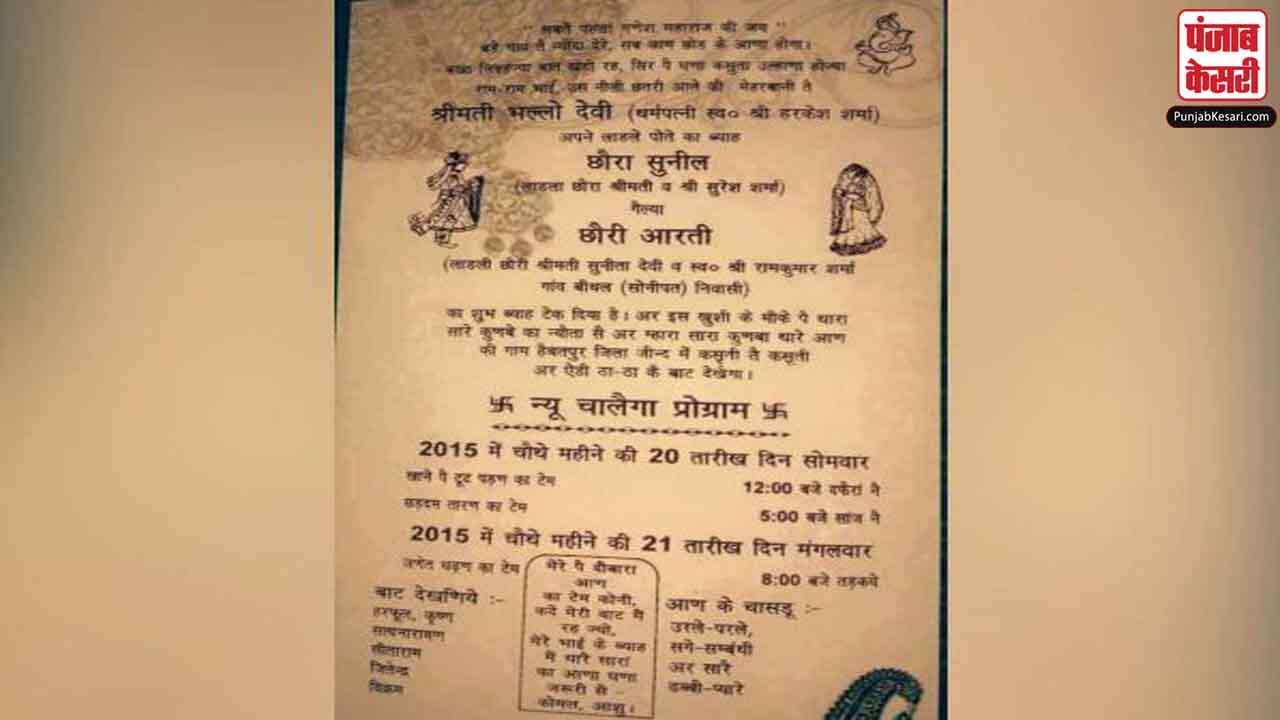 पंजाब
केसरी
PunjabKesari.com
" सबतै पहला गणेश महाराज की जय "
बरे गाम तै न्योंदा देरे, सब काम छोड के आणा होगा।
रह, सिर पै घणा कसुता उल्हाणा होज्या
राम-राम भाई, उस नीली छतरी आले की मेहरबानी तै
श्रीमती भल्लो देवी (धर्मपत्नी स्व० श्री हरकेश शर्मा)
अपने लाडले पोते का ब्याह
छौरा सुनील
(लाडला छौरा श्रीमती व श्री सुरेश शर्मा)
गैल्या
छौरी आरती
(लाडली छौरी श्रीमती सुनीता देवी व स्व० श्री रामकुमार शर्मा
गांव बीधल (सोनीपत) निवासी)
का शुभ ब्याह टेक दिया है। अर इस खुशी के मौके पै थारा
सारे कुणबे का न्यौता सै अर म्हारा सारा कुणबा थारे आण
की गाम हैबतपुर जिला जीन्द में कसूती तै कसूती
अर ऐडी ठा-ठा कै बाट देखेगा।
卐 न्यू चालैगा प्रोग्राम 卐
2015 में चौथे महीने की 20 तारीख दिन सोमवार
खाने पै टूट पड़ण का टेम 12:00 बजे दफैरां नै
तारण का टेम 5:00 बजे सांज नै
2015 में चौथे महीने की 21 तारीख दिन मंगलवार
जनेत चढ़ण का टेम 8:00 बजे तड़कये
बाट देखणिये :-
हरफूल, कृष्ण
सत्यनारायण
सीताराम
जितेन्द्र
विक्रम
मेरे पै दीबारा
आण
का टेम कोनी,
कदे मेरी बाट मै
रह ज्यो,
मेरे भाई के ब्याह
में थारे सारां
का आणा घणा
जरूरी सै -
कोमल, आशु।
आण के चासडू :-
उरले-परले,
सगे-सम्बंधी
अर सारे
ढब्बी-प्यारे